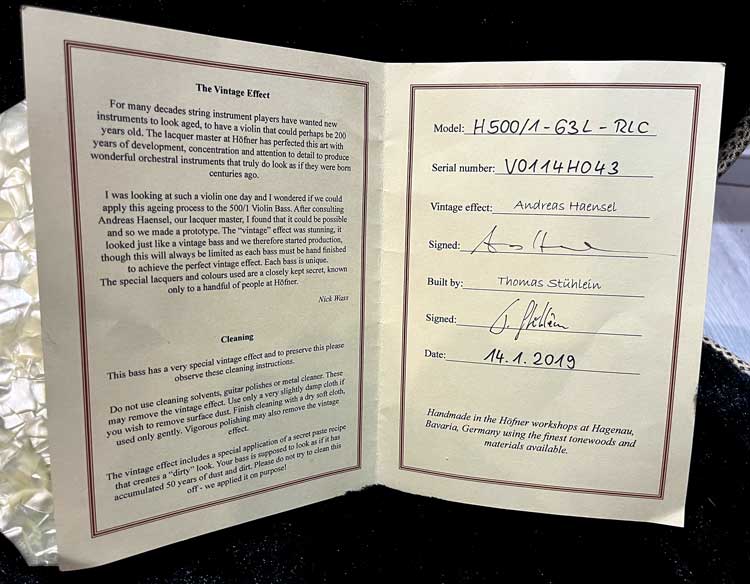 The Vintage Effect
For many decades string instrument players have wanted new
instruments to look aged, to have a violin that could perhaps be 200
years old. The lacquer master at Höfner has perfected this art with
years of development, concentration and attention to detail to produce
wonderful orchestral instruments that truly do look as if they were born
centuries ago.
I was looking at such a violin one day and I wondered if we could
apply this ageing process to the 500/1 Violin Bass. After consulting
Andreas Haensel, our lacquer master, I found that it could be possible
and so we made a prototype. The "vintage" effect was stunning, it
looked just like a vintage bass and we therefore started production,
though this will always be limited as each bass must be hand finished
to achieve the perfect vintage effect. Each bass is unique.
The special lacquers and colours used are a closely kept secret, known
only to a handful of people at Höfner.
Nick Wass
Cleaning
This bass has a very special vintage effect and to preserve this please
observe these cleaning instructions.
Do not use cleaning solvents, guitar polishes or metal cleaner. These
may remove the vintage effect. Use only a very slightly damp cloth if
you wish to remove surface dust. Finish cleaning with a dry soft cloth,
used only gently. Vigorous polishing may also remove the vintage
effect.
The vintage effect includes a special application of a secret paste recipe
that creates a "dirty" look. Your bass is supposed to look as if it has
accumulated 50 years of dust and dirt. Please do not try to clean this
off - we applied it on purpose!
Model: H500/1-63L-RLC
Serial number: V0114H043
Vintage effect: Andreas Haensel
Signed:
Built by: Thomas Stühlein
Signed: T. Stühlein
Date: 14.1.2019
Handmade in the Höfner workshops at Hagenau,
Bavaria, Germany using the finest tonewoods and
materials available.